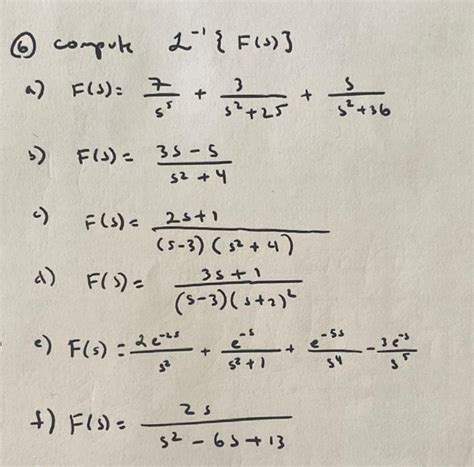 ⑥ compute L⁻¹ { F(s) }
a) F(s) = 7/s⁵ + 3/(s² + 25) + s/(s² + 36)
b) F(s) = (3s - 5)/(s² + 4)
c) F(s) = (2s + 1)/((s-3)(s² + 4))
d) F(s) = (3s + 1)/((s-3)(s+2)²)
e) F(s) = 2e⁻²ˢ/s² + e⁻ˢ/(s² + 1) + e⁻⁵ˢ/s⁴ - 3e⁻ˢ/s⁵
f) F(s) = 2s/(s² - 6s + 13)